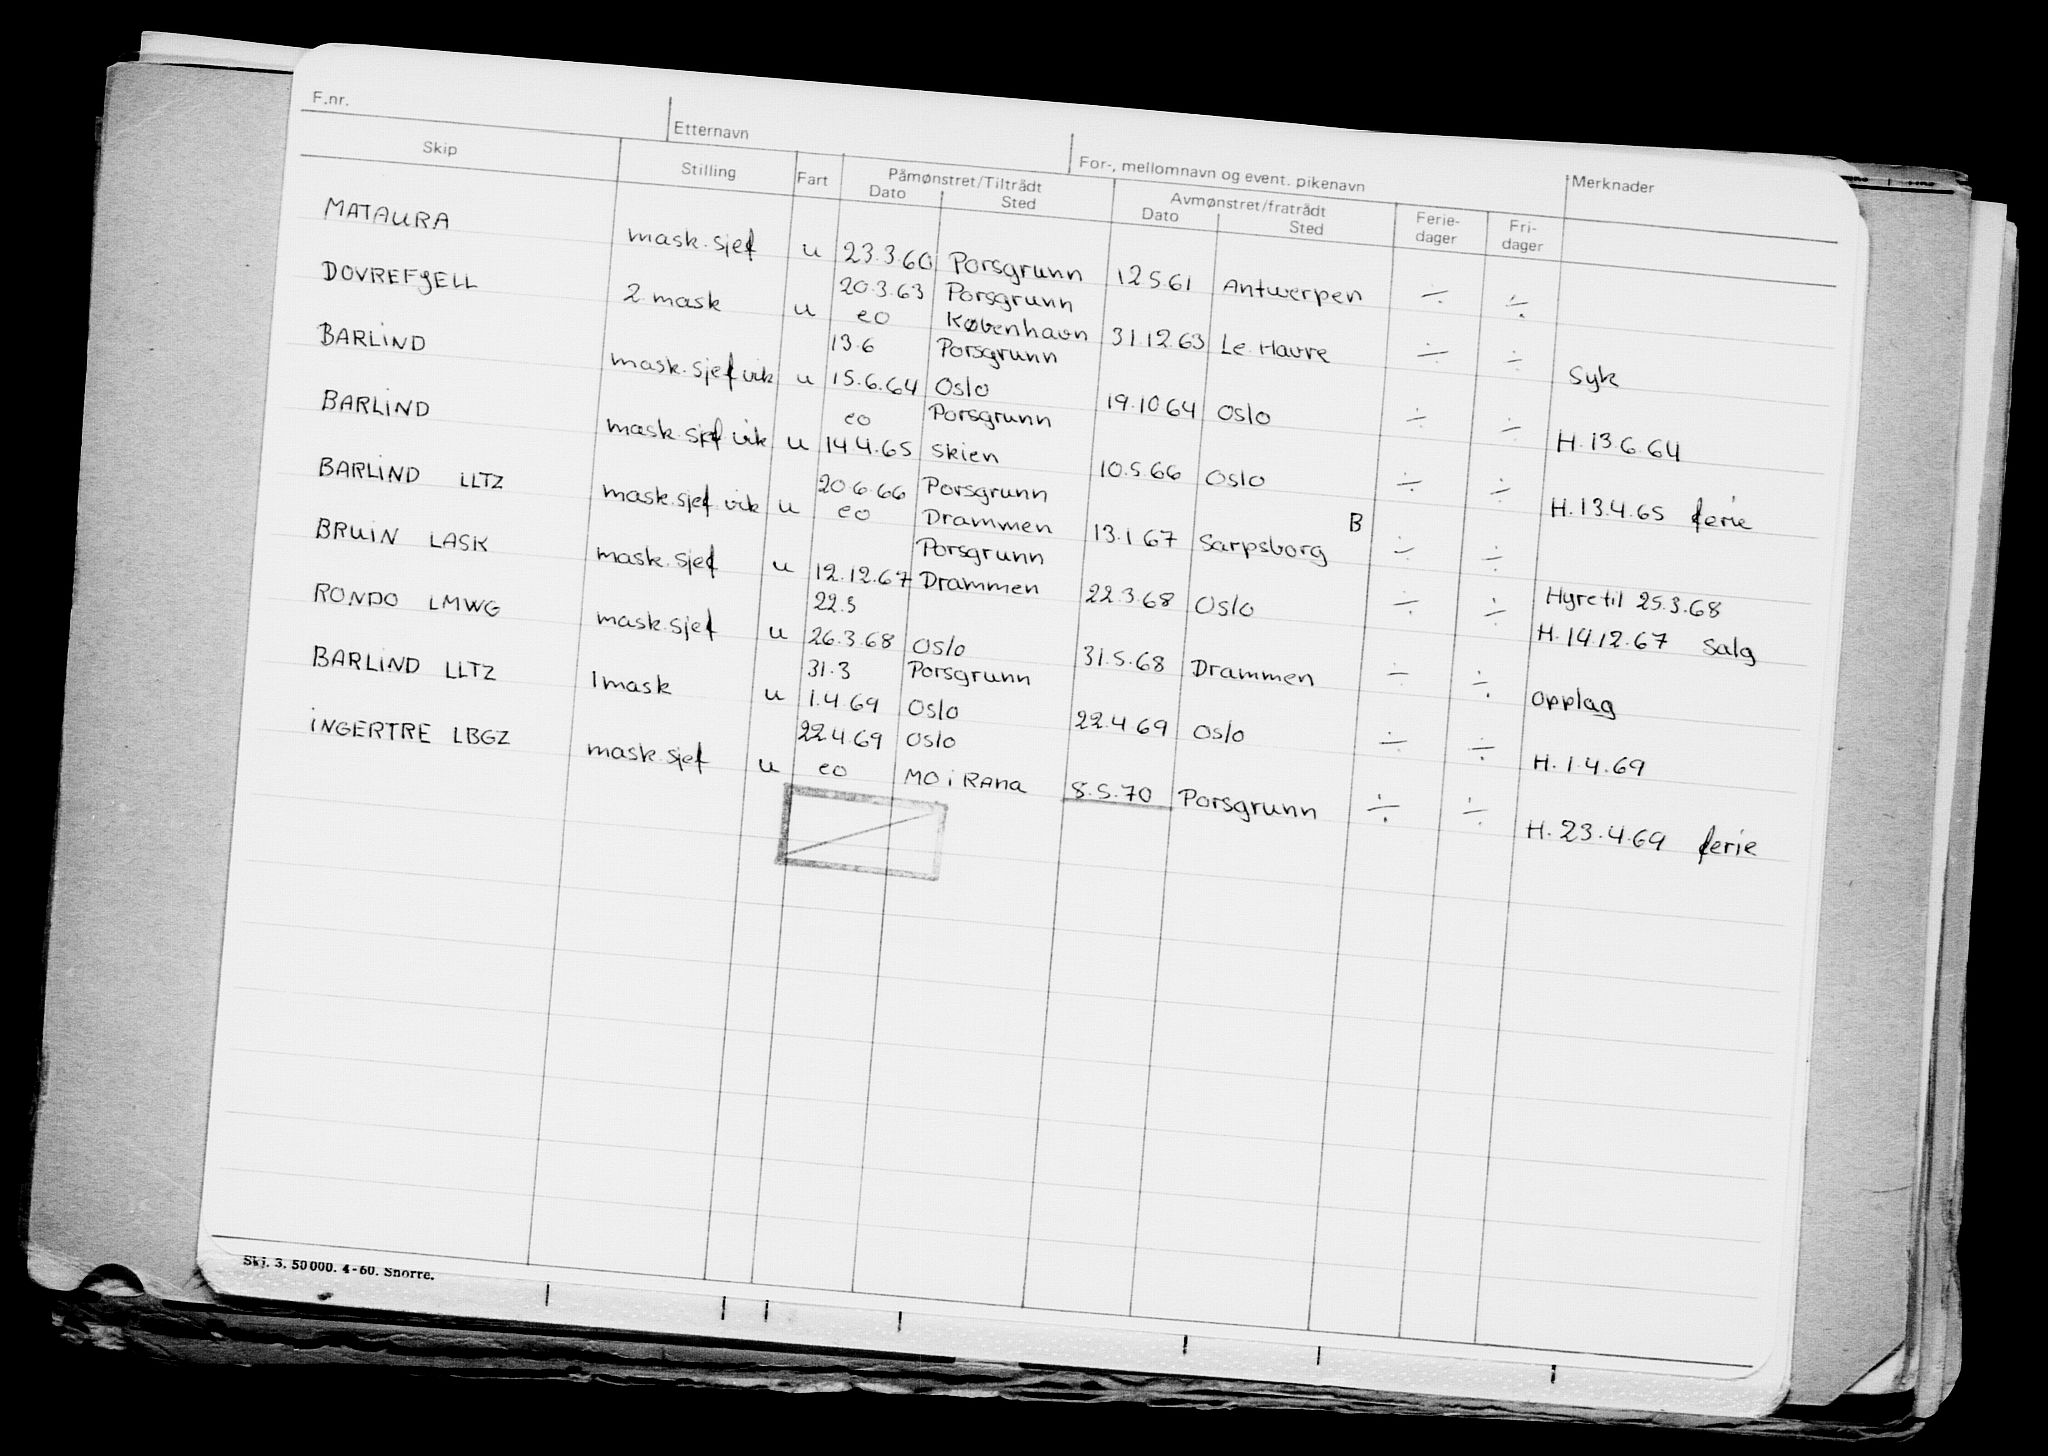 F.nr. Etternavn For-, mellomnavn og event. pikenavn
Skip Stilling Fart Påmønstret/Tiltrådt Avmønstret/fratrådt Ferie- Fri- Merknader
Dato Sted Dato Sted dager dager
MATAURA mask.sjef u 23.3.60 Porsgrunn 12 5 61 Antwerpen ÷ ÷
20.3.63 Porsgrunn
DOVREFJELL 2 mask u eo København 31.12.63 Le Havre ÷ ÷ Syk
13.6 Porsgrunn
BARLIND mask.sjef vik u 15.6.64 Oslo 19.10 64 Oslo ÷ ÷ H.13.6.64
eo Porsgrunn
BARLIND mask.sjef vik u 14.4.65 Skien 10.5.66 Oslo ÷ ÷ H.13.4.65 ferie
20.6.66 Porsgrunn B
BARLIND LLTZ mask.sjef vik u eo Drammen 13.1 67 Sarpsborg ÷ ÷
Porsgrunn Hyre til 25.3.68
BRUIN LASK mask.sjef u 12.12.67 Drammen 22.3.68 Oslo ÷ ÷ H.14.12.67 Salg
22.5
RONDO LMWG mask.sjef u 26.3.68 Oslo 31.5.68 Drammen ÷ ÷ Opplag
31.3 Porsgrunn
BARLIND LLTZ 1 mask u 1.4.69 Oslo 22.4.69 Oslo ÷ ÷ H. 1.4.69
22.4.69 Oslo
INGERTRE LBGZ mask.sjef u eo MO i RANA 8.5.70 Porsgrunn ÷ ÷ H. 23.4.69 ferie
Skj. 3. 50 000. 4-60. Snorre.